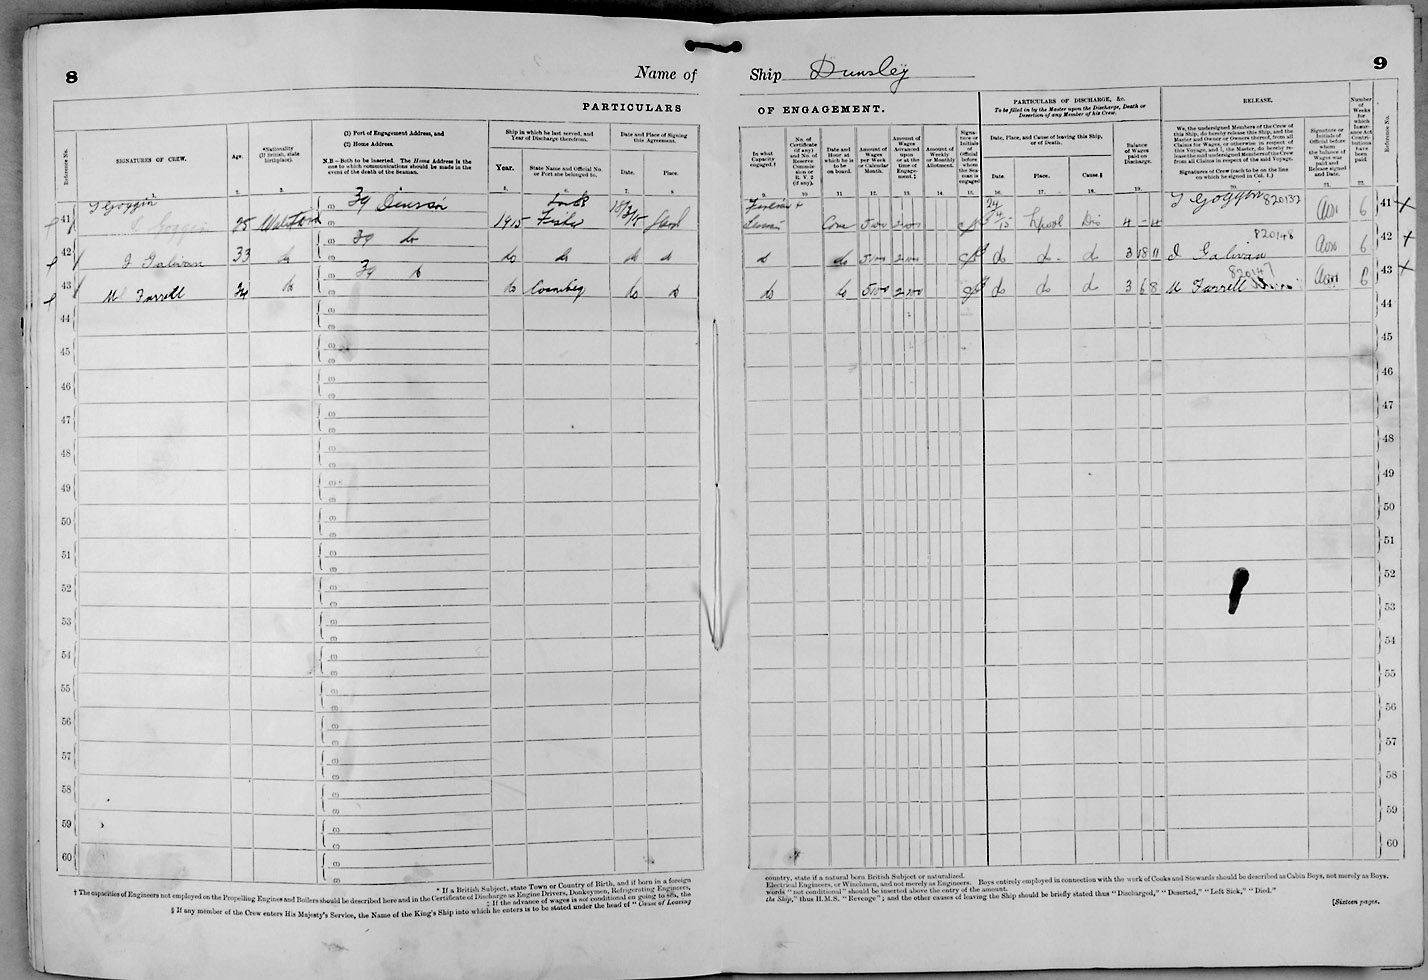 8
Name of
Ship Dunsley
9
PARTICULARS
OF ENGAGEMENT.
PARTICULARS OF DISCHARGE, &c.
To be filled in by the Master upon the Discharge, Death or Desertion of any Member of his Crew.
RELEASE.
Reference No.
SIGNATURES OF CREW.
Age.
*Nationality
(If British, state birthplace).
(1) Port of Engagement Address, and
(2) Home Address.
N.B.—Both to be inserted. The Home Address is the one to which communications should be made in the event of the death of the Seaman.
Ship in which he last served, and Year of Discharge therefrom.
Year.
State Name and Official No. or Port she belonged to.
Date and Place of Signing this Agreement.
Date.
Place.
In what Capacity engaged.†
No. of Certificate (if any) and No. of Reserve Commission or R. V. 2 (if any).
Date and Hour at which he is to be on board.
Amount of Wages per Week or Calendar Month.
Amount of Wages Advanced upon or at the time of Engagement.‡
Amount of Weekly or Monthly Allotment.
Signature or Initials of Official before whom the Seaman is engaged
Date, Place, and Cause of leaving this Ship, or of Death.
Date.
Place.
Cause.§
Balance of Wages paid on Discharge.
We, the undersigned Members of the Crew of this Ship, do hereby release this Ship, and the Master and Owner or Owners thereof, from all Claims for Wages, or otherwise in respect of this Voyage, and I, the Master, do hereby release the said undersigned Members of the Crew from all Claims in respect of the said Voyage.
Signatures of Crew (each to be on the line on which he signed in Col. 1.)
Signature or Initials of Official before whom the balance of Wages was paid and Release signed and Date.
Number of Weeks for which Insurance Act Contributions have been paid.
Reference No.
41 J Goggin 25 Waterford 39 Denison 1915 18/3/15 Fireman 24/4/15 L'pool Dis 4 - J Goggin 820132 6 41
42 J Galivan 33 do 39 do do do do do do do do do do do 3 18 11 J Galivan 820148 6 42
43 M Farrell 24 do 39 do do do do do do 5 10 0 2 10 0 do do do 3 6 8 M Farrell 820147 6 43
44 44
45 45
46 46
47 47
48 48
49 49
50 50
51 51
52 52
53 53
54 54
55 55
56 56
57 57
58 58
59 59
60 60
* If a British Subject, state Town or Country of Birth, and if born in a foreign
country, state if a natural born British Subject or naturalized.
† The capacities of Engineers not employed on the Propelling Engines and Boilers should be described here and in the Certificate of Discharge as Engine Drivers, Donkeymen, Refrigerating Engineers,
Electrical Engineers, or Winchmen, and not merely as Engineers. Boys entirely employed in connection with the work of Cooks and Stewards should be described as Cabin Boys, not merely as Boys.
‡ If the advance of wages is not conditional on going to sea, the
words "not conditional" should be inserted above the entry of the amount.
§ If any member of the Crew enters His Majesty's Service, the Name of the King's Ship into which he enters is to be stated under the head of "Cause of Leaving
the Ship," thus H.M.S. "Revenge"; and the other causes of leaving the Ship should be briefly stated thus "Discharged," "Deserted," "Left Sick," "Died."
[Sixteen pages.